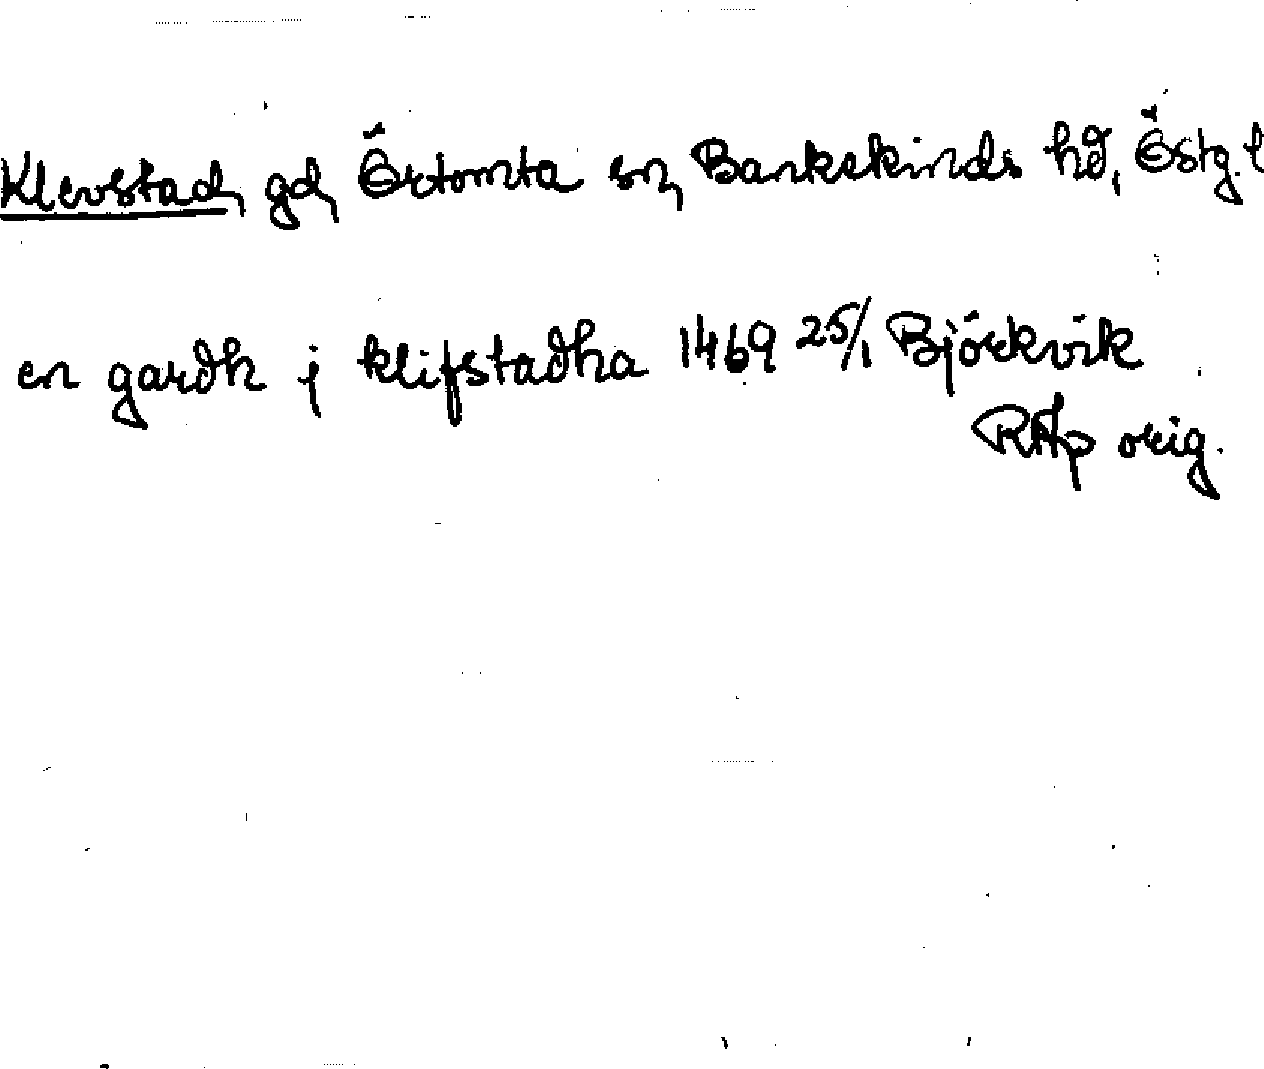 Klevstad, gd, Örtomta sn, Bankekinds hd, Östg. l
en gardh j klifstadha 1469 25/1 Björkvik
RAp orig.